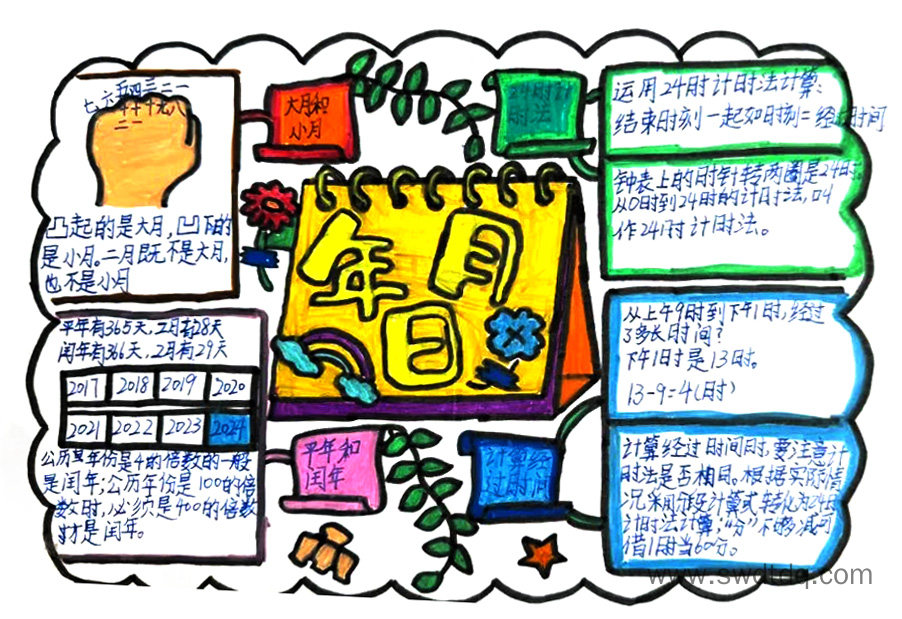 大月和
小月
七六五四三二一
二一
凸起的是大月,凹下的
是小月。二月既不是大月,
也不是小月
24时计
时法
运用24时计时法计算:
结束时刻一起始时刻=经过时间
钟表上的时针转两圈是24时。
从0时到24时的计时法,叫
作24时计时法。
年月
日
平年有365天,2月有28天
闰年有366天,2月有29天
2017 2018 2019 2020
2021 2022 2023 2024
公历某年份是4的倍数的一般
是闰年;公历年份是100的倍
数时,必须是400的倍数
才是闰年。
平年和
闰年
从上午9时到下午1时,经过
了多长时间?
下午1时是13时。
13-9=4(时)
计算经
过时间
计算经过时间时,要注意计
时法是否相同。根据实际情
况采用分段计算或转化为24时
计时法计算;“分”不够减可
借1时当60分。
www.swdtdq.com